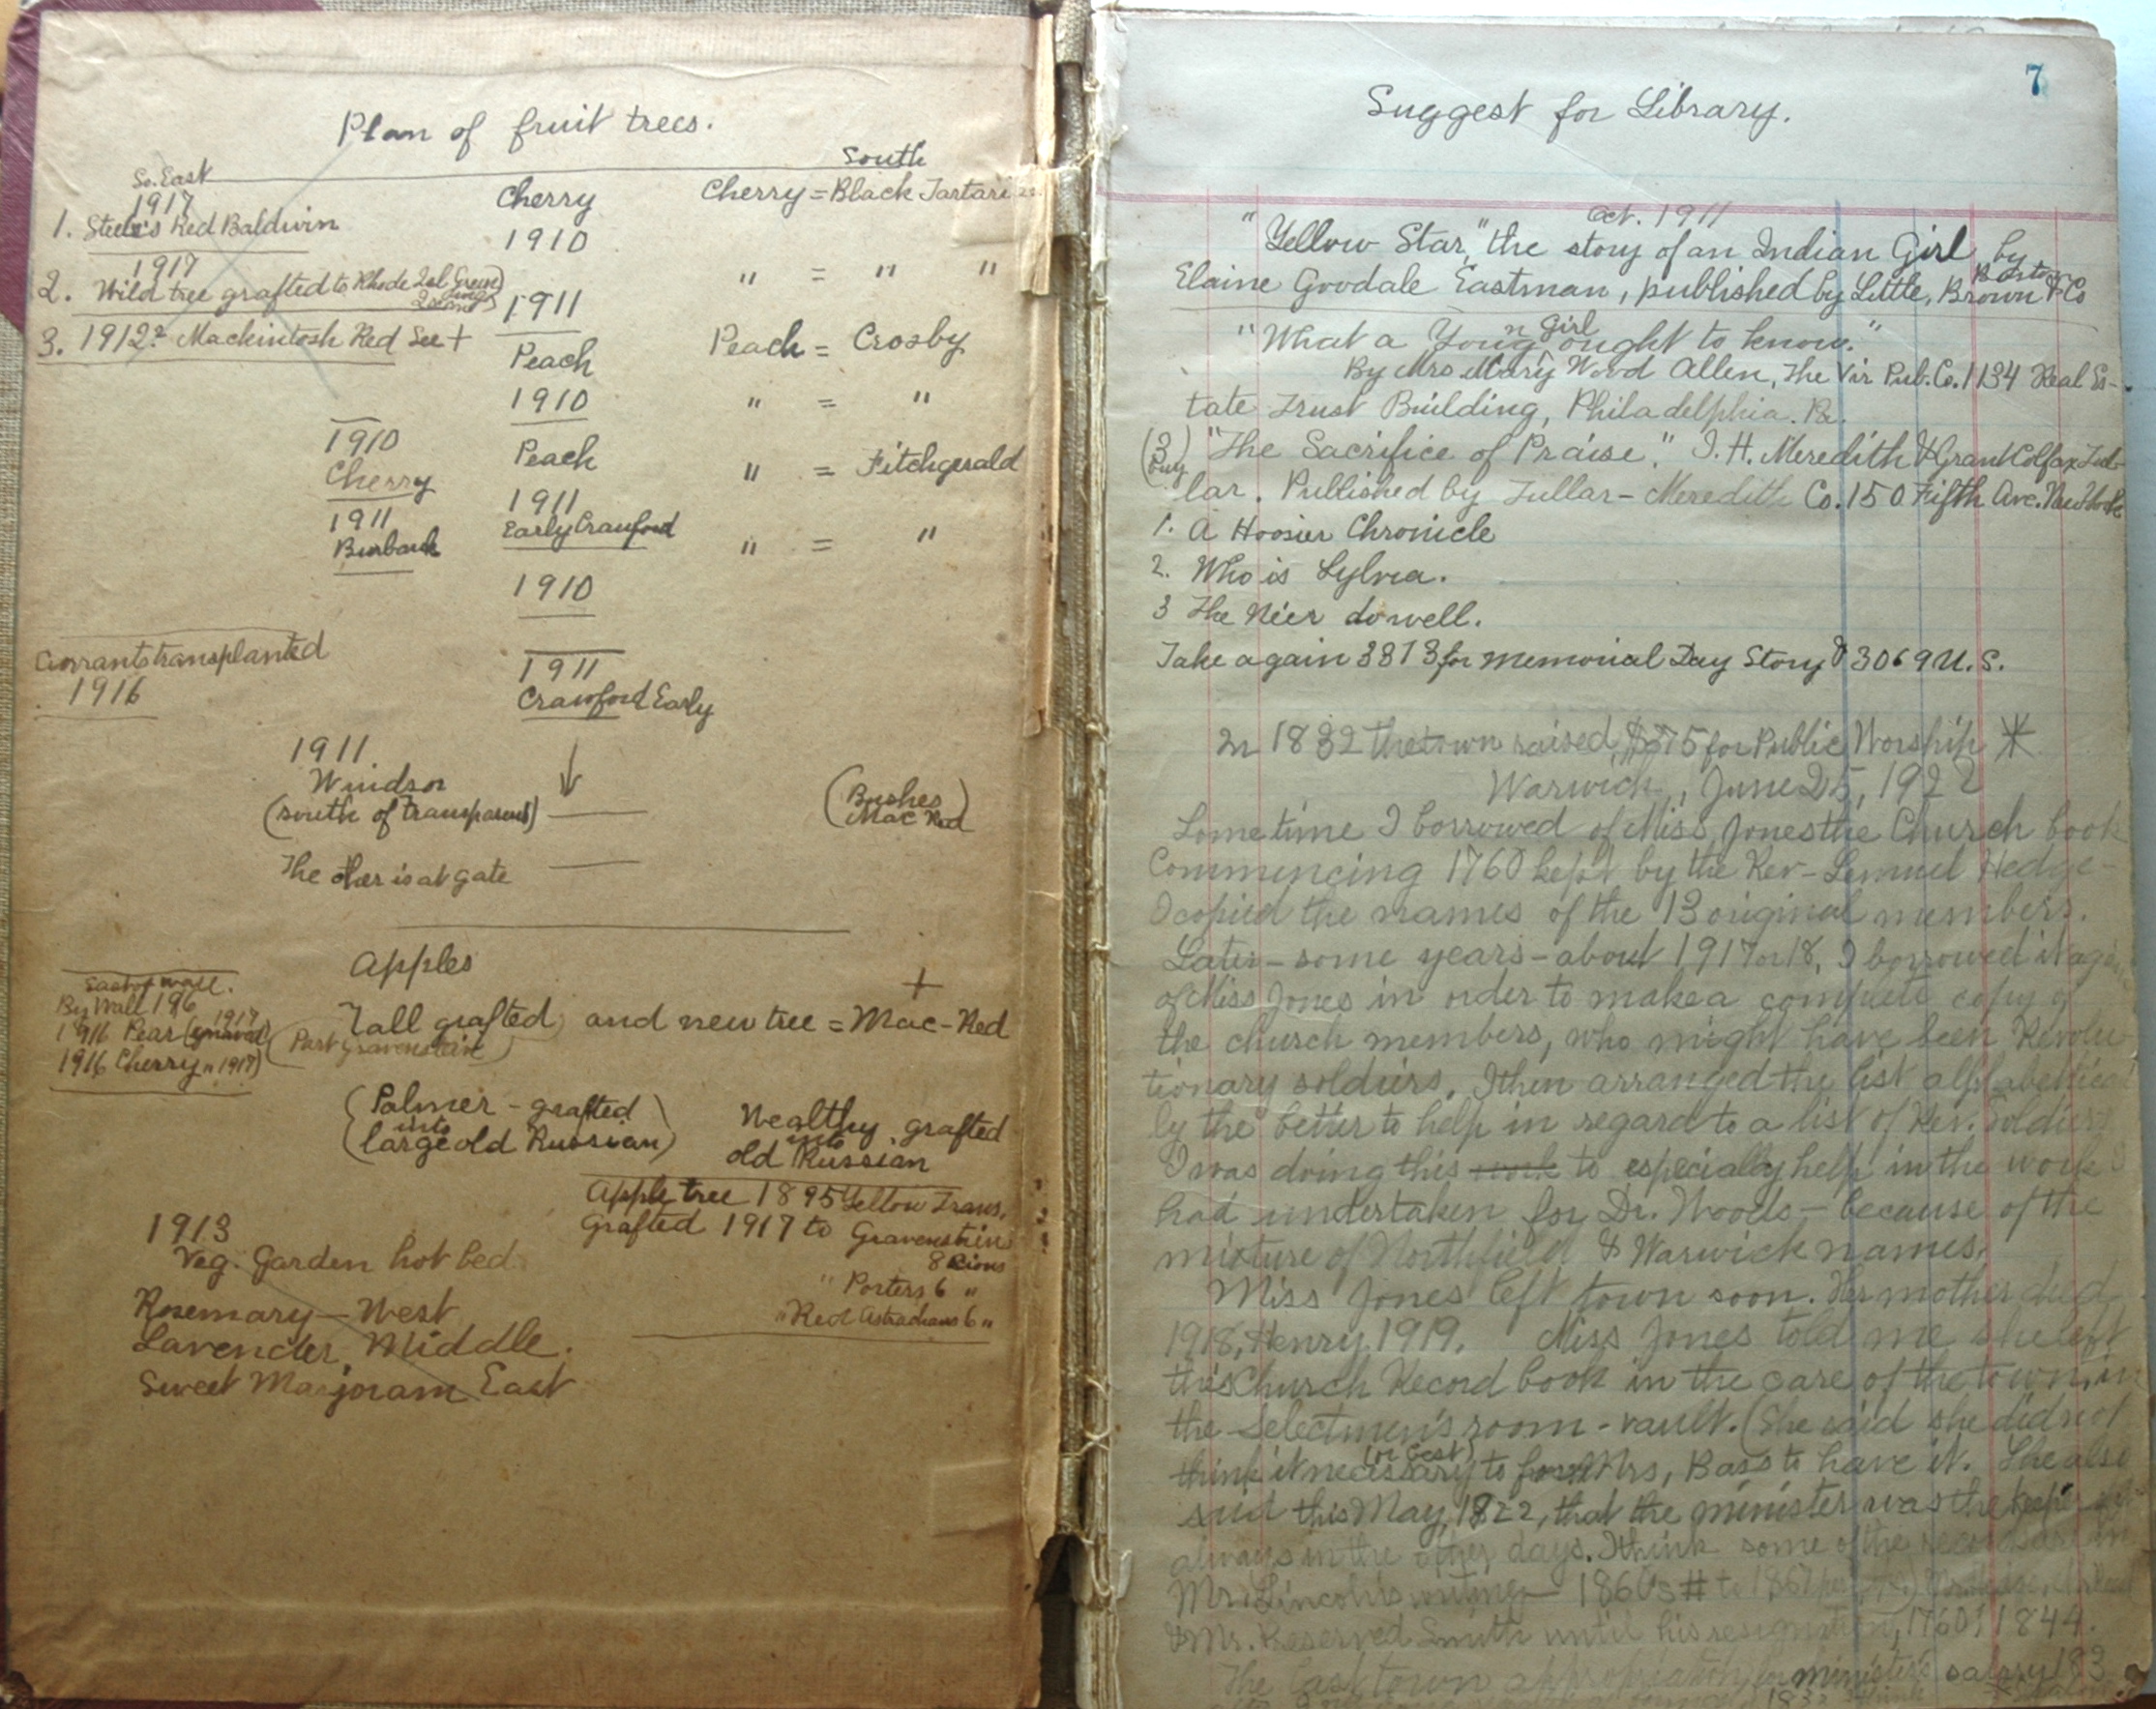 Plan of fruit trees.
South
So. East
1917
1. Steele's Red Baldwin
1917
2. Wild tree grafted to Rhode Isl Green
3. 1912? Mackintosh Red See +
Cherry
1910
1911
Peach
1910
Peach
1911
Early Crawford
1910
Cherry = Black Tartarian
" = " "
Peach = Crosby
" = "
" = Fitchgerald
" = "
1910
Cherry
1911
Burbank
Currants transplanted
1916
1911
Crawford Early
1911
Windsor
(south of transparent)
The other is at gate
(Bushes
Mac Red)
Apples
+
Tall grafted and new tree = Mac-Red
(Part Gravenstein)
East of wall.
By Wall 1916
1917
1916 Pear
1916 Cherry " 1917)
(Palmer - grafted
into
large old Russian)
Wealthy grafted
into
old Russian
Apple tree 1895 Yellow Trans.
Grafted 1917 to Gravenstein
8 Cions
" Porters 6 "
" Red Astrachans 6 "
1913
Veg. Garden hot bed
Rosemary - West
Lavender, Middle.
Sweet Marjoram East
7
Suggest for Library.
Oct. 1911
"Yellow Star," the story of an Indian Girl by
Elaine Goodale Eastman, published by Little, Brown & Co
Boston
"What a Young Girl ought to know."
By Mrs Mary Wood Allen, The Vir Pub. Co. 1134 Real Es-
tate Trust Building, Philadelphia. Pa.
(3) "The Sacrifice of Praise." I. H. Meredith & Grant Colfax Tul-
(Buy) lar. Published by Tullar-Meredith Co. 150 Fifth Ave. New York
1. A Hoosier Chronicle
2. Who is Sylvia.
3 The Ne'er do well.
Take again 3813 for Memorial Day Story & 3069 U.S.
In 1832 the town raised for Public Worship *
Warwick, June 25, 1922
Sometime I borrowed of Miss Jones the Church book
Commencing 1760 kept by the Rev- Lemuel Hedge-
I copied the names of the 13 original members.
Later - some years - about 1917 or 18, I borrowed it again
of Miss Jones in order to make a complete copy of
the church members, who might have been Revolu-
tionary soldiers. I then arranged the list alphabetical
ly the better to help in regard to a list of Rev. Soldiers
I was doing this work to especially help in the work I
had undertaken for Dr. Woods - because of the
mixture of Northfield & Warwick names.
Miss Jones left town soon. Her mother died
1918, Henry, 1919. Miss Jones told me she left
this Church Record book in the care of the town, in
the selectmen's room - vault. (She said she did not
(or best)
think it necessary to for Mrs, Bass to have it. She also
said this May, 1822, that the minister was the keeper
always in the other days. I think some of the records are in
Mr. Lincoln's writing - 1860s # to 1867
& Mr. Preserved Smith until his resignation, 1844.
The last town appropriation for minister's salary 183